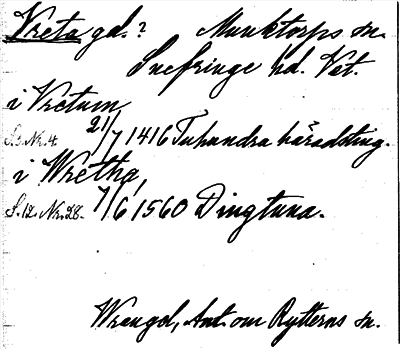 Vreta gd.? Munktorps sn.
Snefringe hd. Vst.
i Vretum
S. Nr. 4. 21/7 1416 Tuhundra häradsting.
i Wretha,
S. 12. Nr. 28. 7/6 1560 Dingtuna.
Wrangel, Ant. om Rytterns sn.